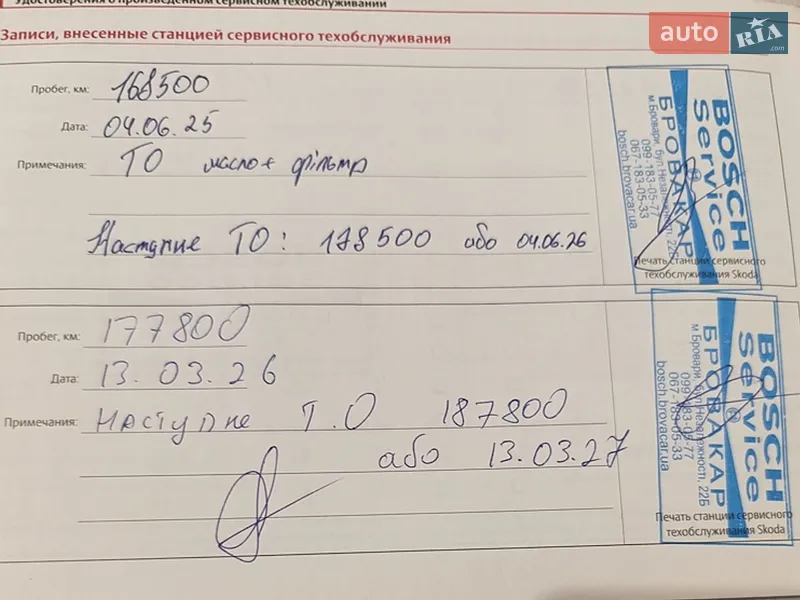 Удостоверения о произведенном сервисном техобслуживании
Записи, внесенные станцией сервисного техобслуживания
auto RIA .com
Пробег, км: 168500
Дата: 04.06.25
Примечания: ТО масло+ фільтр
Наступне ТО: 178500 або 04.06.26
BOSCH
Service
БРОВАКАР
м.Бровари, бул.Незалежності, 22Б
099-183-05-77
067-183-05-33
bosch.brovacar.ua
Печать станции сервисного
техобслуживания Skoda
Пробег, км: 177800
Дата: 13.03.26
Примечания: Наступне Т.О 187800
або 13.03.27
BOSCH
Service
БРОВАКАР
м.Бровари, бул.Незалежності, 22Б
099-183-05-77
067-183-05-33
bosch.brovacar.ua
Печать станции сервисного
техобслуживания Skoda